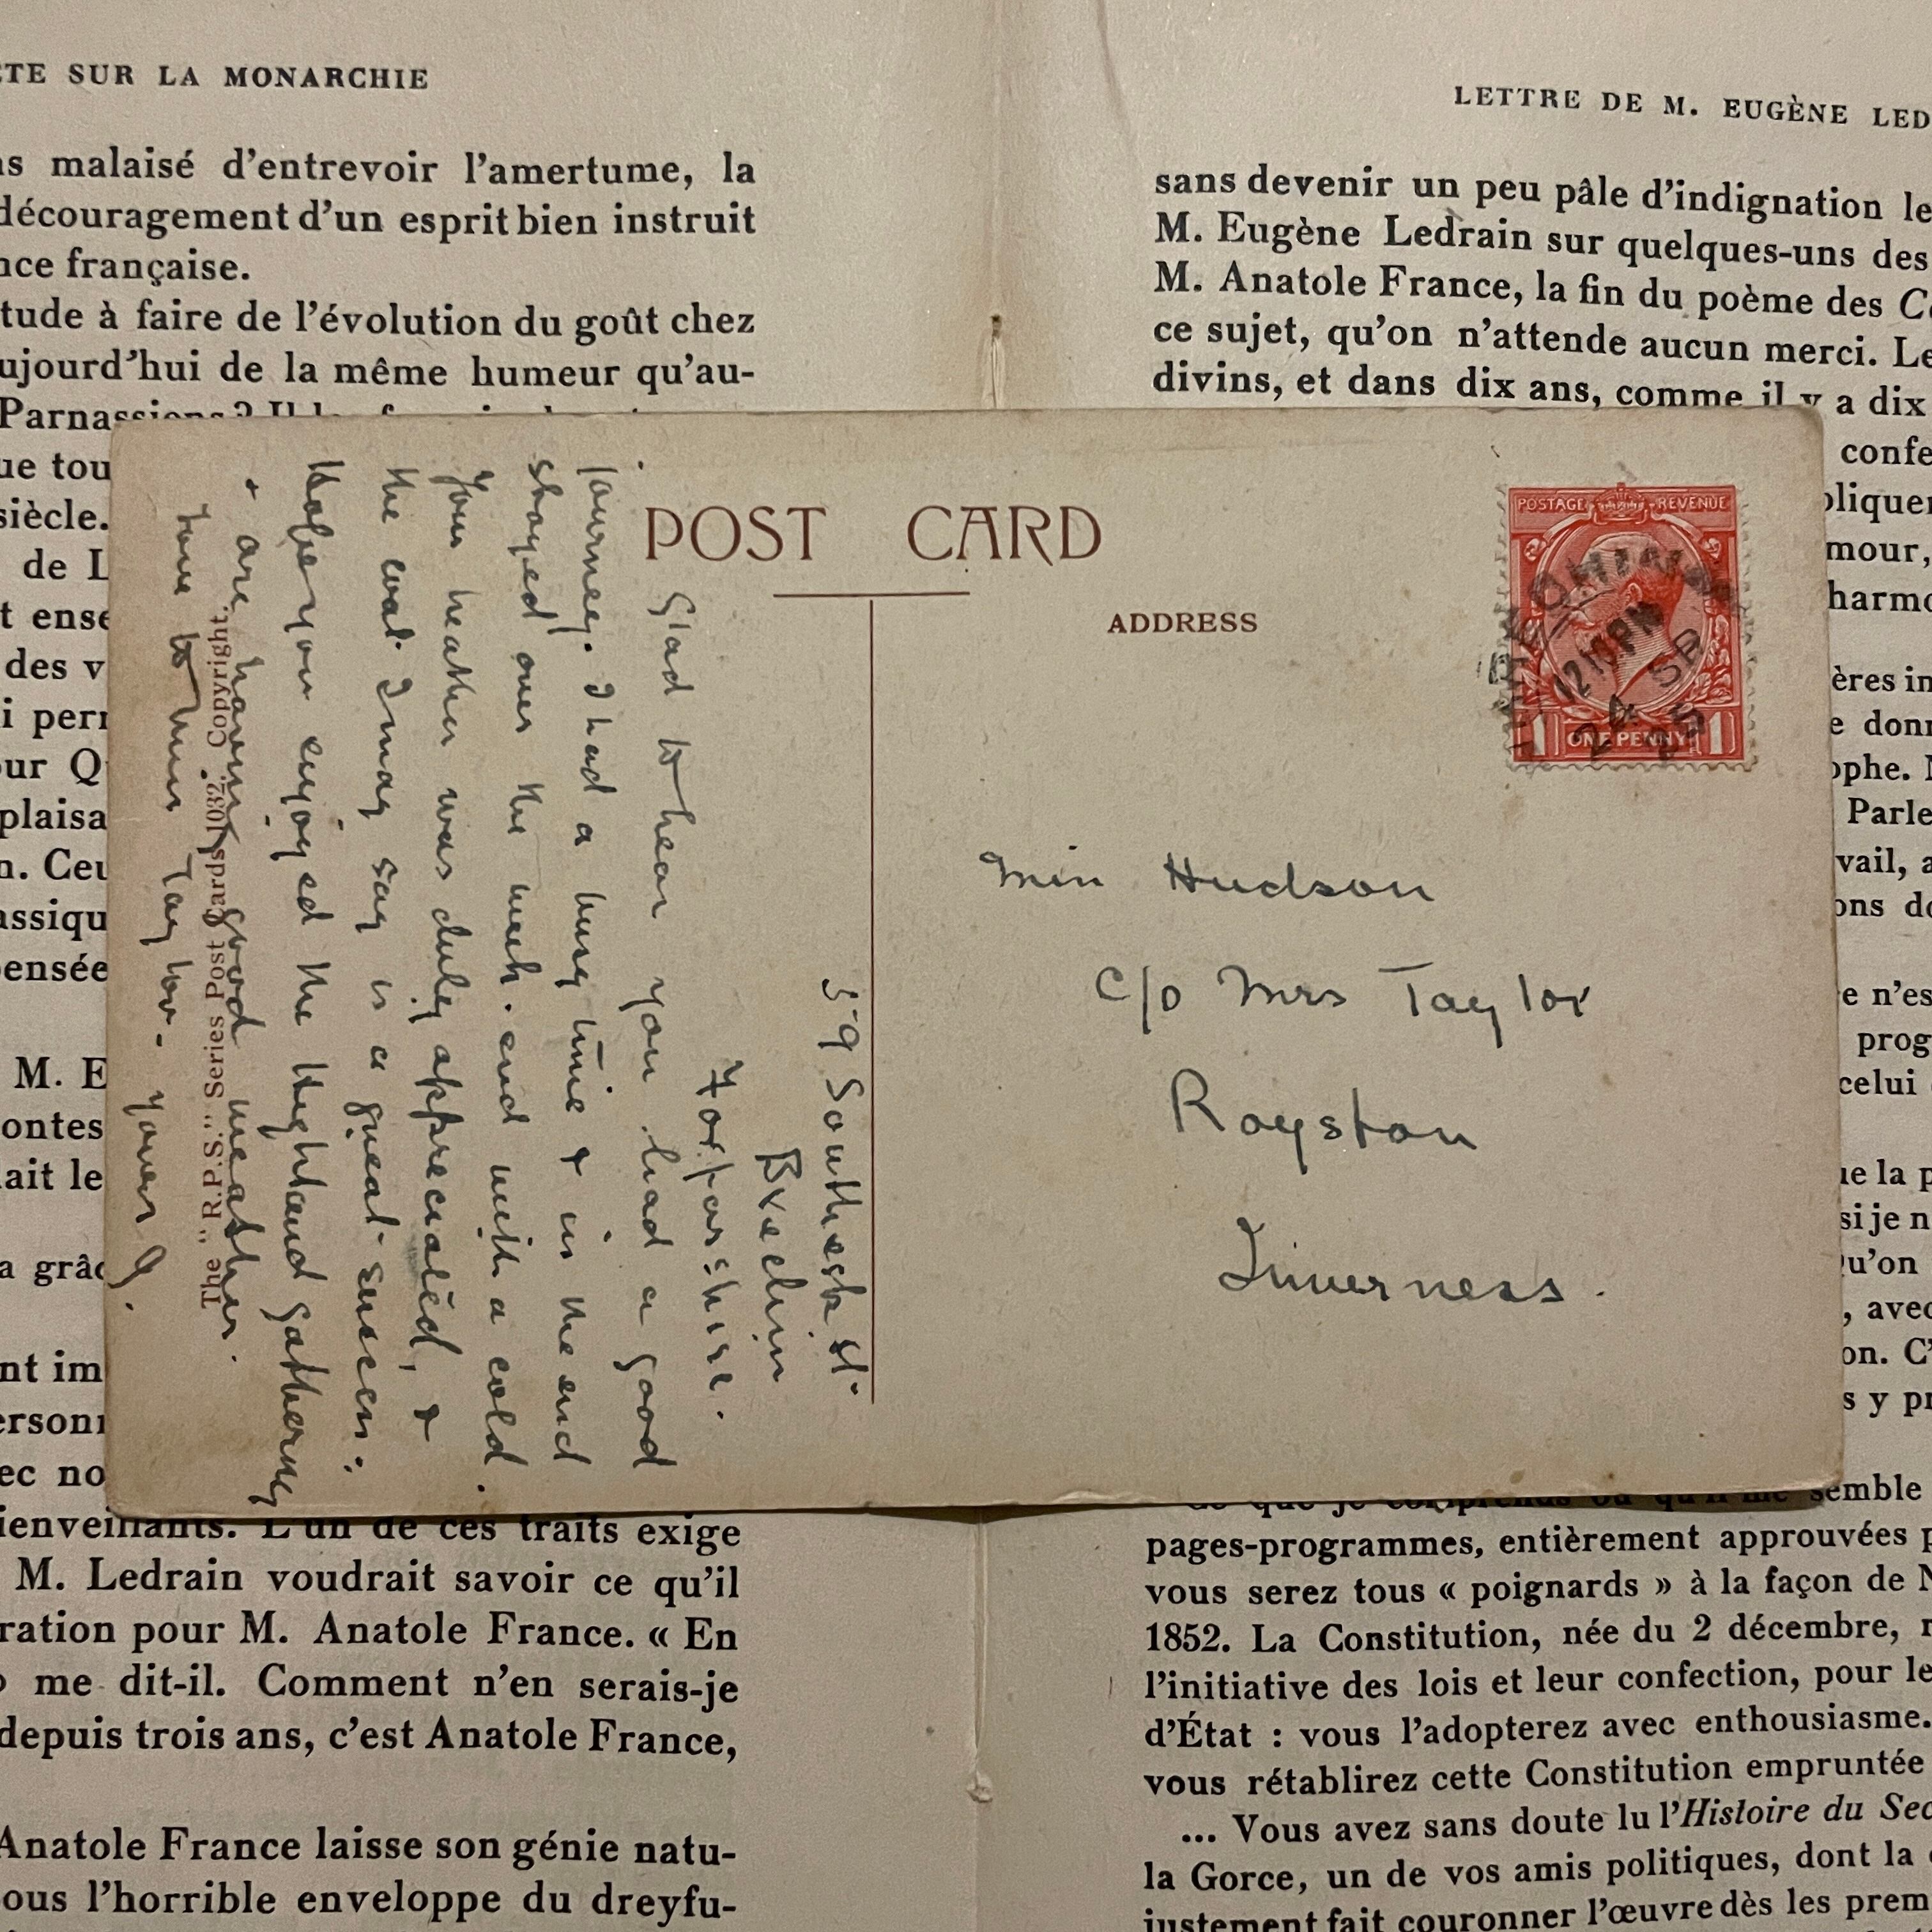 TE SUR LA MONARCHIE
s malaisé d'entrevoir l'amertume, la
découragement d'un esprit bien instruit
nce française.
tude à faire de l'évolution du goût chez
ujourd'hui de la même humeur qu'au-
Parnassiens? Il
ue tou
siècle.
de L
t ense
des v
i perr
ur Q
plaisa
n. Ceu
assiqu
pensée
M. E
ontes
ait le
a grâc
nt im
ersonn
ec no
ienveillants. L'un de ces traits exige
M. Ledrain voudrait savoir ce qu'il
ration pour M. Anatole France. « En
me dit-il. Comment n'en serais-je
depuis trois ans, c'est Anatole France,
Anatole France laisse son génie natu-
ous l'horrible enveloppe du dreyfu-
LETTRE DE M. EUGÈNE LED
sans devenir un peu pâle d'indignation le
M. Eugène Ledrain sur quelques-uns des
M. Anatole France, la fin du poème des
ce sujet, qu'on n'attende aucun merci. Le
divins, et dans dix ans, comme il y a dix
confe
oliquer
mour,
harmo
ères in
e donn
ophe. M
Parle
vail, a
ons do
e n'es
prog
celui
ue la p
si je n
u'on
, avec
on. C'
s y pr
semble
pages-programmes, entièrement approuvées p
vous serez tous « poignards » à la façon de N
1852. La Constitution, née du 2 décembre, r
l'initiative des lois et leur confection, pour le
d'État : vous l'adopterez avec enthousiasme.
vous rétablirez cette Constitution empruntée
... Vous avez sans doute lu l'Histoire du Sec
la Gorce, un de vos amis politiques, dont la
justement fait couronner l'œuvre dès les prem
POST CARD
ADDRESS
POSTAGE REVENUE
1 ONE PENNY 1
12 10 PM
24 SP
25
Miss Hudson
c/o Mrs Taylor
Royston
Inverness.
59 Southesk St.
Brechin
Forfarshire.
Glad to hear you had a good
journey. I had a busy time & in the end
stayed over the week-end with a cold.
Your heather was duly appreciated, &
the coat I may say is a great success.
Hope you enjoyed the Highland Gathering
& are having good weather.
Love to Mrs Taylor. Yours J.
The "R.P.S." Series Post Cards 1032. Copyright.